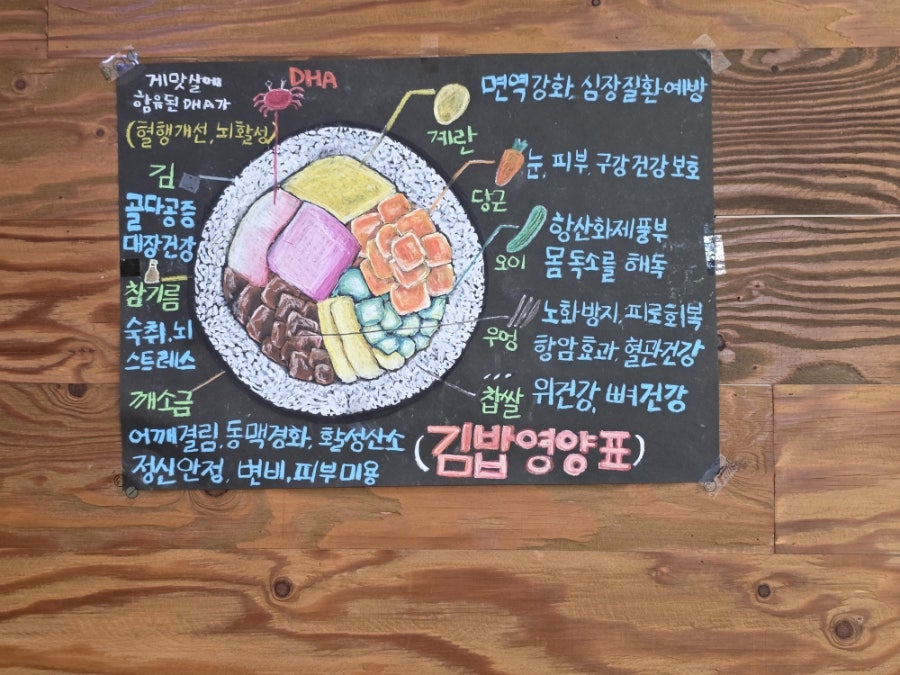 게맛살에
함유된 DHA가
(혈행개선, 뇌활성)
DHA
김
골다공증
대장건강
참기름
숙취, 뇌
스트레스
깨소금
어깨결림, 동맥경화, 활성산소
정신안정, 변비, 피부미용
계란
면역강화, 심장질환 예방
당근
눈, 피부, 구강 건강 보호
오이
항산화제 풍부
몸 독소를 해독
우엉
노화방지, 피로회복
항암효과, 혈관건강
찹쌀
위건강, 뼈건강
(김밥영양표)